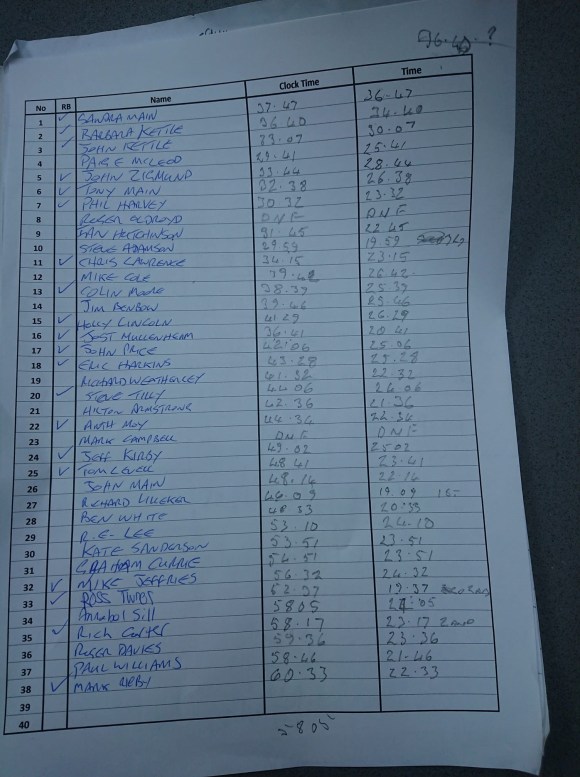 No RB Name Clock Time Time
1 ✓ SANDRA MAIN 37.47 36.47
2 ✓ BARBARA KETTLE 36.40 34.40
3 ✓ JOHN KETTLE 33.07 30.07
4 PAIGE MCLEOD 29.41 25.41
5 ✓ JOHN ZIGMUND 33.44 28.44
6 ✓ TONY MAIN 32.38 26.38
7 ✓ PHIL HARVEY 30.32 23.32
8 ROGER OLDROYD DNF DNF
9 IAN HUTCHINSON 31.45 22.45
10 STEVE ADAMSON 29.59 19.59
11 ✓ CHRIS LAWRENCE 34.15 23.15
12 MIKE COLE 26.42
13 ✓ COLIN MOORE 38.39 25.39
14 JIM BENBOW 39.46 25.46
15 ✓ HOLLY LINCOLN 41.29 26.29
16 ✓ JOST 36.41 20.41
17 ✓ JOHN PRICE 42.06 25.06
18 ✓ ERIC 43.28 25.28
19 RICHARD WEATHERLEY 41.32 22.32
20 ✓ STEVE TILLY 44.06 24.06
21 HILTON ARMSTRONG 42.36 21.36
22 ✓ ANTH MOY 44.34 22.34
23 MARK CAMPBELL DNF DNF
24 ✓ JEFF KIRBY 49.02 25.02
25 ✓ TOM LEVELL 48.41 23.41
26 JOHN MAIN 48.14 22.14
27 RICHARD LILLEKER 46.09 19.09 1ST
28 BEN WHITE 48.33 20.33
29 R.E. LEE 53.10 24.10
30 KATE SANDERSON 53.51 23.51
31 GRAHAM CURRIE 54.51 23.51
32 ✓ MIKE JEFFRIES 56.32 24.32
33 ✓ ROSS 52.37 19.37
34 Annabel Sill 5805 24.05
35 ✓ Rich Carter 58.17 23.17
36 ROGER DAVIES 59.36 23.36
37 PAUL WILLIAMS 58.46 21.46
38 ✓ MARK KIRBY 60.33 22.33
39
40
5805